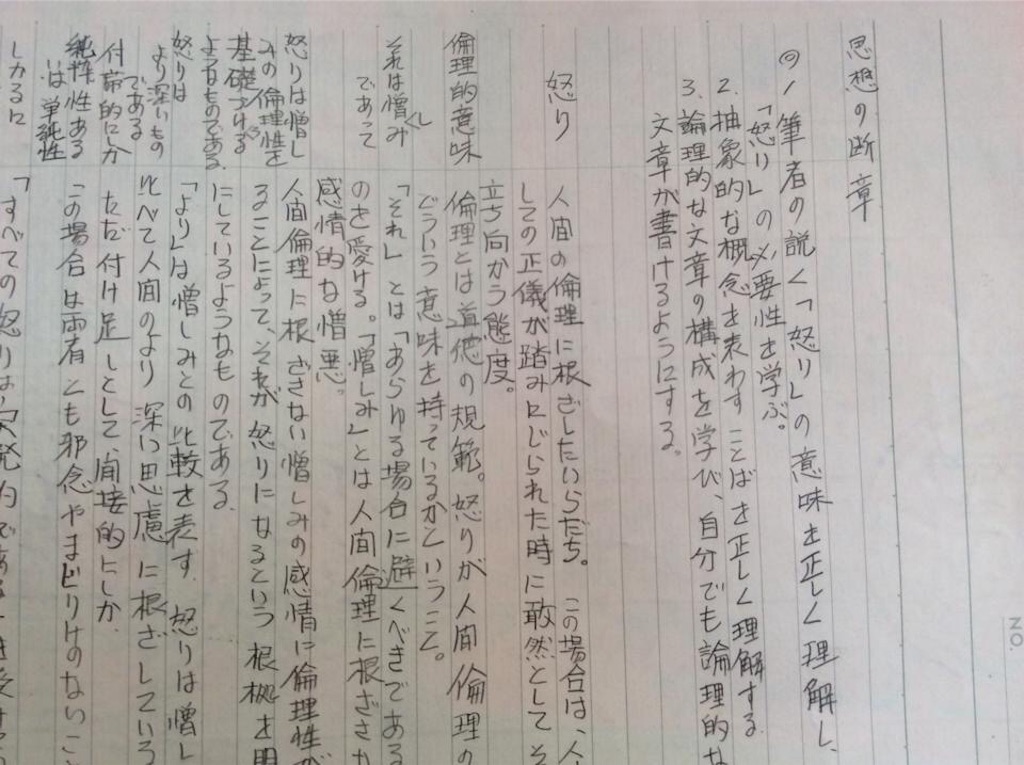 NO.
思想の断章
◎1 筆者の説く「怒り」の意味を正しく理解し、
「怒り」の必要性を学ぶ。
2. 抽象的な概念を表わすことばを正しく理解する
3. 論理的な文章の構成を学び、自分でも論理的な
文章が書けるようにする。
怒り
人間の倫理に根ざしたいらだち。この場合は、人
しての正儀が踏みにじられた時に敢然としてそ
立ち向かう態度。
倫理的意味
倫理とは道徳の規範。怒りが人間倫理の
どういう意味を持っているかということ。
それは憎くしみ
であって
「それ」とは「あらゆる場合に避くべきである
のを受ける。「憎しみ」とは人間倫理に根ざさ
感情的な憎悪。
怒りは憎し
みの倫理性を
基礎づける
ようなものである
人間倫理に根ざさない憎しみの感情に倫理性が
ることによって、それが怒りになるという根拠を明
にしているようなものである
怒りは
より深いもの
である
「より」は憎しみとの比較を表す. 怒りは憎し
比べて人間のより深い思慮に根ざしている
付帯的にしか
ただ付け足しとして、間接的にしか
純粋性ある
いは単純性
この場合は両者とも邪念やまじりけのないこ
しかるに
「すべての怒りは突発的である」を受け